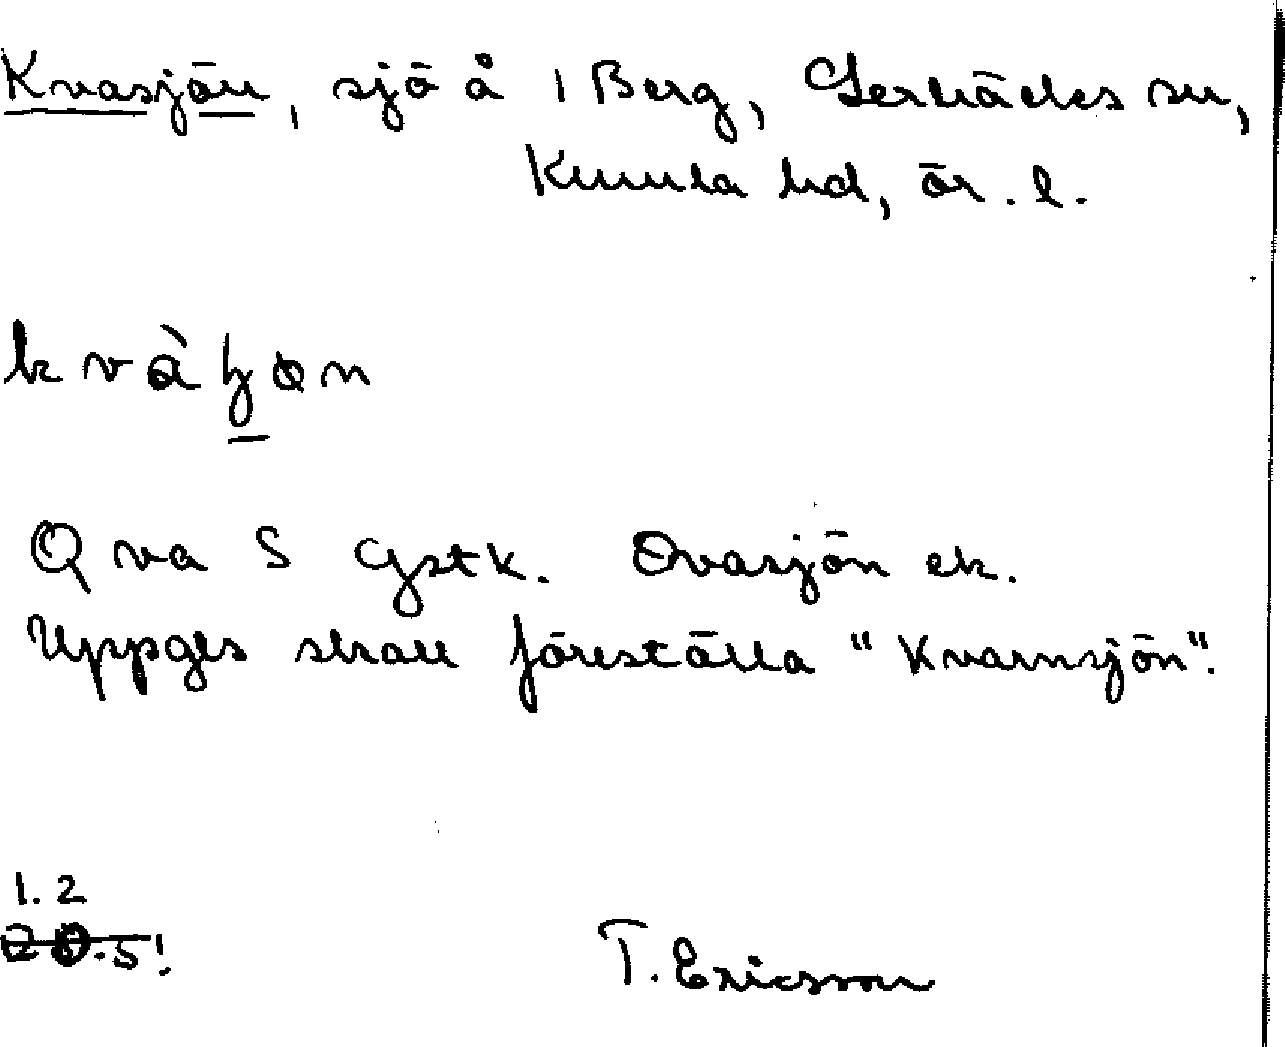 Kvasjön, sjö å 1 Berg, Lerbäcks sn,
Kumla hd, Ör. l.
kvàʒøn
Qva S Gstk. Qvasjön ek.
Uppges skall föreställa "Kvarnsjön".
1.2
20.5!
T. Ericsson